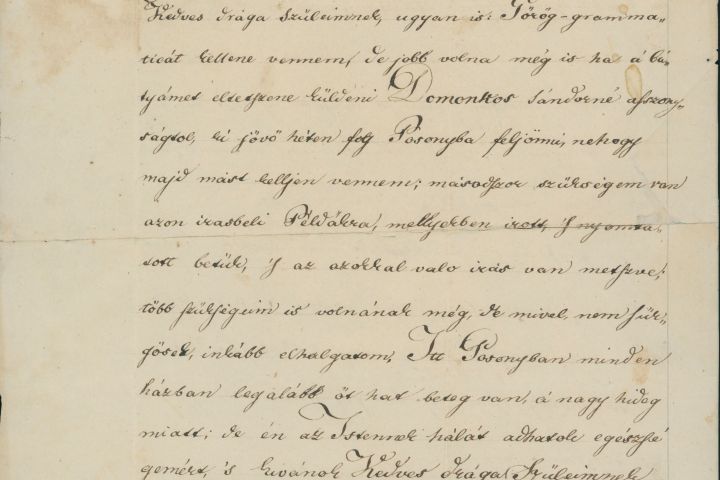 Kedves drága Szüleimnek, ugyan is: Görög-gramma„
ticát kellene vennem, de jobb volna még is ha á bá„
tyámét eltetszene küldeni Domonkos Sándorné aſszony„
ságtol, ki jövő héten fog Posonyba feljönni, nehogy
majd mást kelljen vennem; másodszor szükségem van
azon irasbeli Példákra, mellyekben irott, 's nyomta„
tott betük, 's az azokkal valo irás van metszve;
több szükségeim is volnának még, de mivel nem sür„
gősek, inkább elhalgatom; Itt Posonyban minden
házban legalább öt hat beteg van, á nagy hideg
miatt; de én az Istennek hálát adhatok egészsé
gemért, 's kivánok Kedves drága Szüleimnek